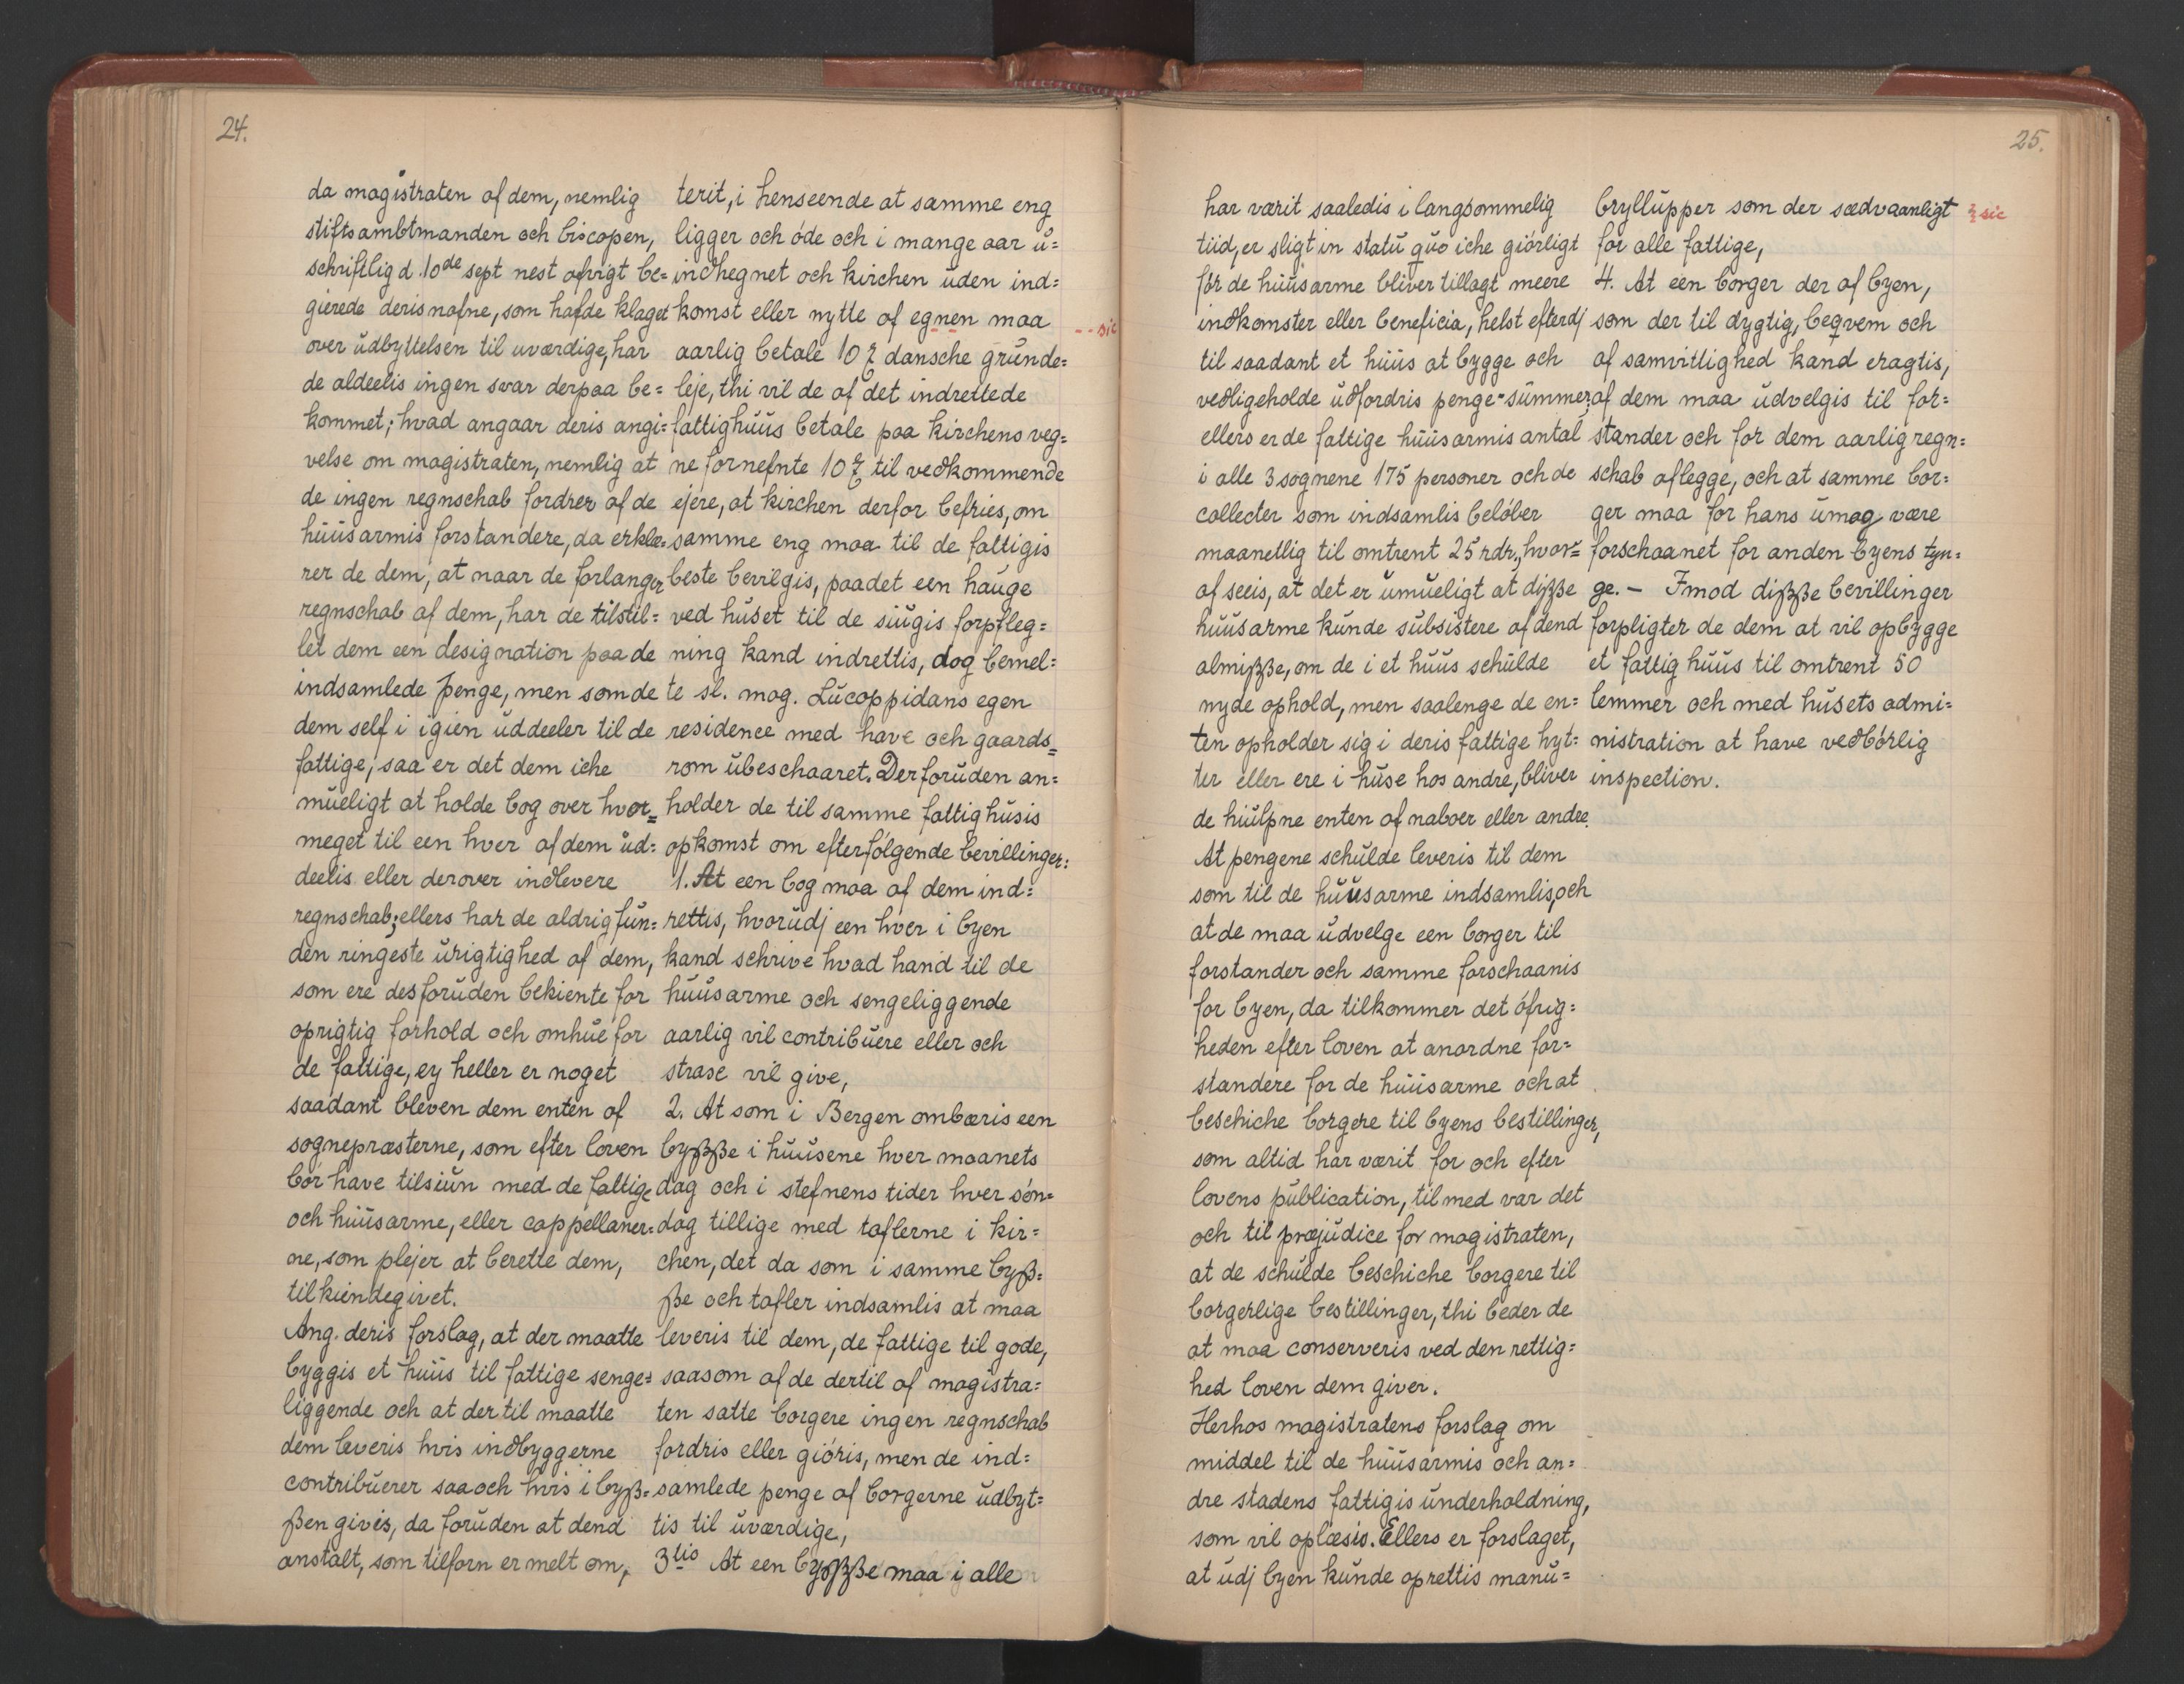 24.
da magistraten af dem, nemlig
stiftsambtmanden och biscopen,
schriftlig d. 10de sept nest afvigt be=
gierede deris nafne, som hafde klaget
over udbyttelsen til uværdige, har
de aldeelis ingen svar derpaa be=
kommet; hvad angaar deris angi=
velse om magistraten, nemlig at
de ingen regnschab fordrer af de
huusarmis forstandere, da erklæ=
rer de dem, at naar de forlanger
regnschab af dem, har de tilstil=
let dem een designation paa de
indsamlede penge, men som de
dem self i igien uddeeler til de
fattige, saa er det dem iche
mueligt at holde bog over hvor=
meget til een hver af dem ud=
deelis eller derover indlevere
regnschab; ellers har de aldrig fun=
den ringeste urigtighed af dem,
som ere desforuden bekiente for
oprigtig forhold och omhue for
de fattige, ey heller er noget
saadant bleven dem enten af
sognepræsterne, som efter loven
bør have tilsiun med de fattige
och huusarme, eller cappellaner=
ne, som plejer at berette dem,
tilkiendegivet.
Ang. deris forslag, at der maatte
byggis et huus til fattige senge=
liggende och at der til maatte
dem leveris hvis indbyggerne
contribuerer saa och hvis i byß=
ßen givis, da foruden at dend
anstalt, som tilforn er melt om,
terit, i henseende at samme eng
ligger och öde och i mange aar u=
indhegnet och kirchen uden ind=
komst eller nytte af egnen maa -- sic
aarlig betale 10 ℥ dansche grunde=
leje, thi vil de af det indrettede
fattighuus betale paa kirchens veg=
ne fornefnte 10 ℥ til vedkommende
ejere, at kirchen derfor befries, om
samme eng maa til de fattigis
beste bevilgis, paadet een hauge
ved huset til de siugis forpfleg=
ning kand indrettis, dog bemel=
te sl. mag. Lucoppidans egen
residence med have och gaards=
rom ubeschaaret. Derforuden an=
holder de til samme fattighusis
opkomst om efterfölgende bevillinger:
1. At een bog maa af dem ind=
rettis, hvorudj een hver i byen
kand schrive hvad hand til de
huusarme och sengeliggende
aarlig vil contribuere eller och
strase vil give,
2. At som i Bergen ombæris een
byßße i huusene hver maanets
dag och i stefnens tider hver søn=
dag tillige med taflerne i kir=
chen, det da som i samme byß=
ße och tafler indsamlis at maa
leveris til dem, de fattige til gode,
saasom af de dertil af magistra=
ten satte borgere ingen regnschab
fordris eller giöris, men de ind=
samlede penge af borgerne udbyt=
tis til uværdige,
3tio At een byßße maa i alle
25.
har værit saaledis i langsommelig
tiid, er sligt in statu quo iche giörligt
för de huusarme bliver tillagt meere
indkomster eller beneficia, helst efterdj
til saadant et huus at bygge och
vedligeholde udfordris penge-summer;
ellers er de fattige huusarmis antal
i alle 3 sognene 175 personer och de
collecter som indsamlis belöber
maanetlig til omtrent 25 rdr., hvor=
af seeis, at det er umueligt at dißße
huusarme kunde subsistere af dend
almißße, om de i et huus schulde
nyde ophold, men saalenge de en=
ten opholder sig i deris fattige hyt=
ter eller ere i huse hos andre, bliver
de hiulpne enten af naboer eller andre.
At pengene schulde leveris til dem
som til de huusarme indsamlis, och
at de maa udvelge een borger til
forstander och samme forschaanis
for byen, da tilkommer det öfrig=
heden efter loven at anordne for=
standere for de huusarme och at
beschiche borgere til byens bestillinger,
som altid har værit for och efter
lovens publication, til med var det
och til præjudice for magistraten,
at de schulde beschiche borgere til
borgerlige bestillinger, thi beder de
at maa conserveris ved den rettig=
hed loven dem giver.
Herhos magistratens forslag om
middel til de huusarmis och an=
dre stadens fattigis underholdning,
som vil oplæsis. Ellers er forslaget,
at udj byen kunde oprettis manu=
bryllupper som der sædvaanligt sic
for alle fattige,
4. At een borger der af byen,
som der til dygtig, beqvem och
af samvittighed kand eragtis,
af dem maa udvelgis til for=
stander och for dem aarlig regn=
schab aflegge, och at samme bor=
ger maa for hans umag være
forschaanet for anden byens tyn=
ge. – Imod dißße bevillinger
forpligter de dem at vil opbygge
et fattig huus til omtrent 50
lemmer och med husets admi=
nistration at have vedbörlig
inspection.